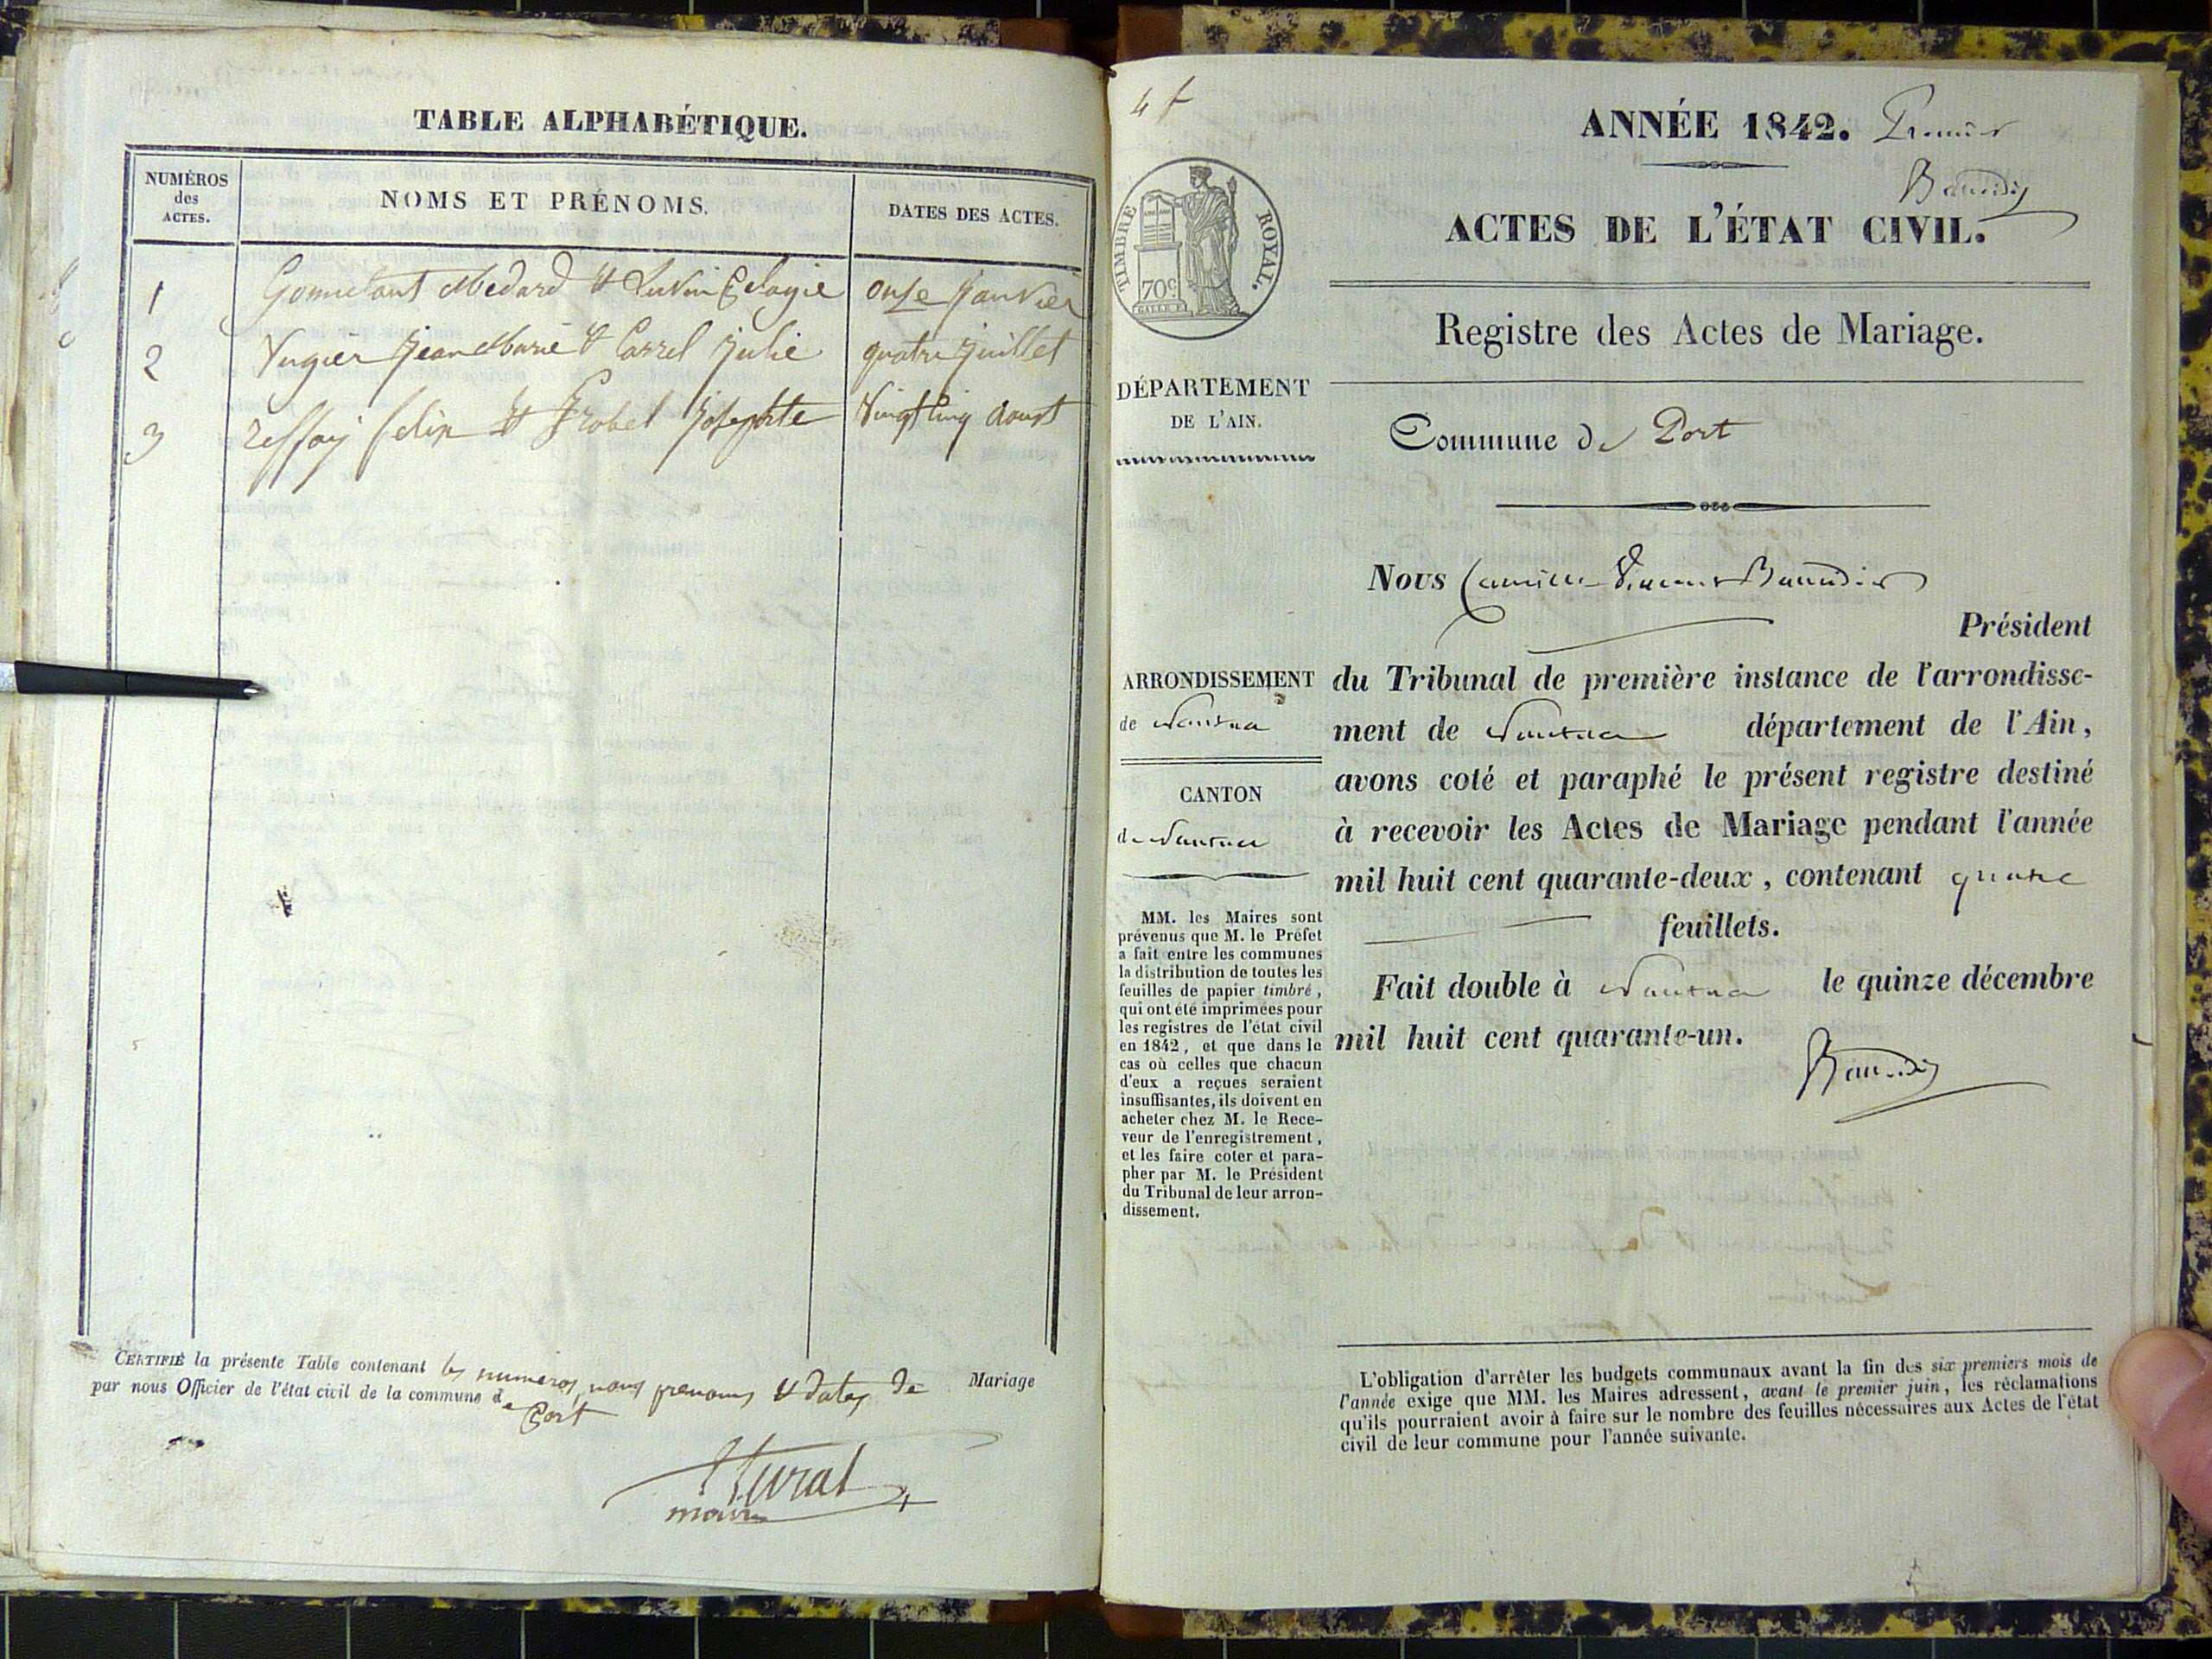 TABLE ALPHABÉTIQUE.
NUMÉROS des ACTES.
NOMS ET PRÉNOMS.
DATES DES ACTES.
1 Medard et Pelagie onze Janvier
2 Jean Marie et Carrel Julie quatre Juillet
3 Felix et Josephte Vingt Cinq Aoust
CERTIFIÉ la présente Table contenant les numeros, noms prenoms et dates de Mariage
par nous Officier de l'état civil de la commune de Port
maire
4 f
ANNÉE 1842. Premier
Baudin
TIMBRE ROYAL.
70c
ACTES DE L'ÉTAT CIVIL.
Registre des Actes de Mariage.
DÉPARTEMENT
DE L'AIN.
Commune de Port
Nous Camille Vincent
Président
ARRONDISSEMENT
de Nantua
CANTON
de Nantua
MM. les Maires sont
prévenus que M. le Préfet
a fait entre les communes
la distribution de toutes les
feuilles de papier timbré,
qui ont été imprimées pour
les registres de l'état civil
en 1842, et que dans le
cas où celles que chacun
d'eux a reçues seraient
insuffisantes, ils doivent en
acheter chez M. le Rece-
veur de l'enregistrement,
et les faire coter et para-
pher par M. le Président
du Tribunal de leur arron-
dissement.
du Tribunal de première instance de l'arrondisse-
ment de Nantua département de l'Ain,
avons coté et paraphé le présent registre destiné
à recevoir les Actes de Mariage pendant l'année
mil huit cent quarante-deux, contenant quatre
feuillets.
Fait double à Nantua le quinze décembre
mil huit cent quarante-un.
L'obligation d'arrêter les budgets communaux avant la fin des six premiers mois de
l'année exige que MM. les Maires adressent, avant le premier juin, les réclamations
qu'ils pourraient avoir à faire sur le nombre des feuilles nécessaires aux Actes de l'état
civil de leur commune pour l'année suivante.